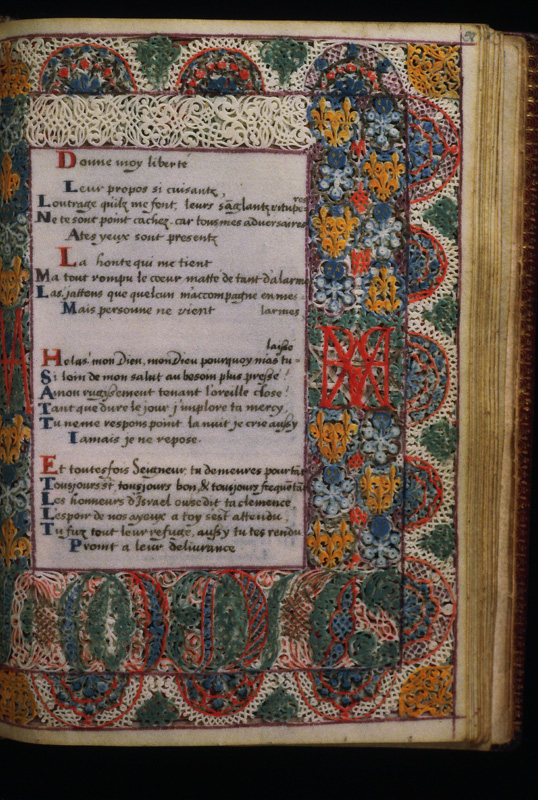 Donne moy liberté
Leur propos si cuisantz,
Loutrage quilz me font, leurs sãglantz vitupe=
res
Ne te sont point cachez, car tous mes adversaires
A tes yeux sont presentz
La honte qui me tient
Ma tout rompu le coeur matte de tant d'alarmes
Las, j'attens que quelcun m'accompagne en mes
Mais personne ne vient larmes
laisse
Helas! mon Dieu, mon Dieu pourquoy mas tu=
Si loin de mon salut au besoin plus presse!
A mon rugyssement tenant l'oreille close!
Tant que dure le jour j'implore ta mercy,
Tu ne me respons point la nuit je crie aussy
Iamais je ne repose.
Et toutesfois Seigneur, tu demeures pourtãt
Tousjours st tousjours bon, & tousjours
Les honneurs d'Israel ou se dit ta clemence,
L'espoir de nos ayeux a toy s'est attendu;
Tu fuz tout leur refuge, aussy tu tes rendu
Promt a leur delivrance